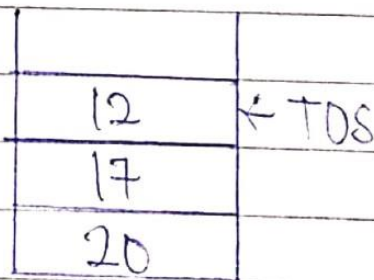 12 ← TOS
17
20